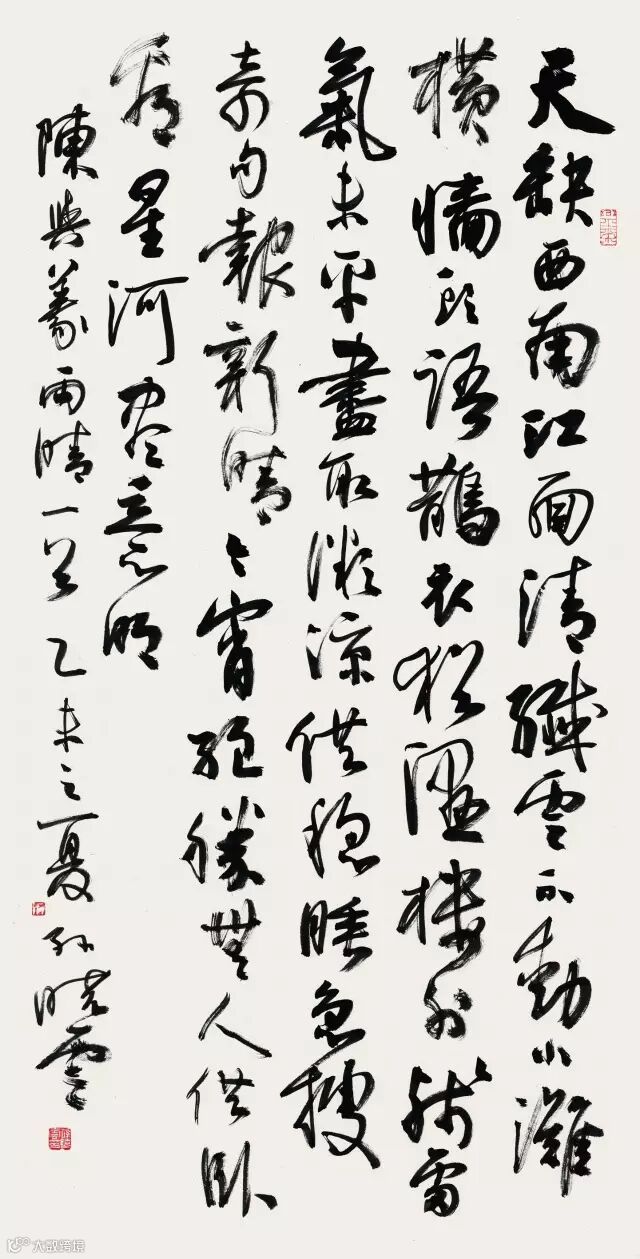 天缺西南江面清纖雲不動小灘
橫牆頭語鵲衣猶濕樓外殘雷
氣未平盡取微涼供穩睡急搜
奇句報新晴今宵絕勝無人供臥
看星河盡意明
陳與義雨晴一首 乙未之夏 孫曉雲
大数跨境